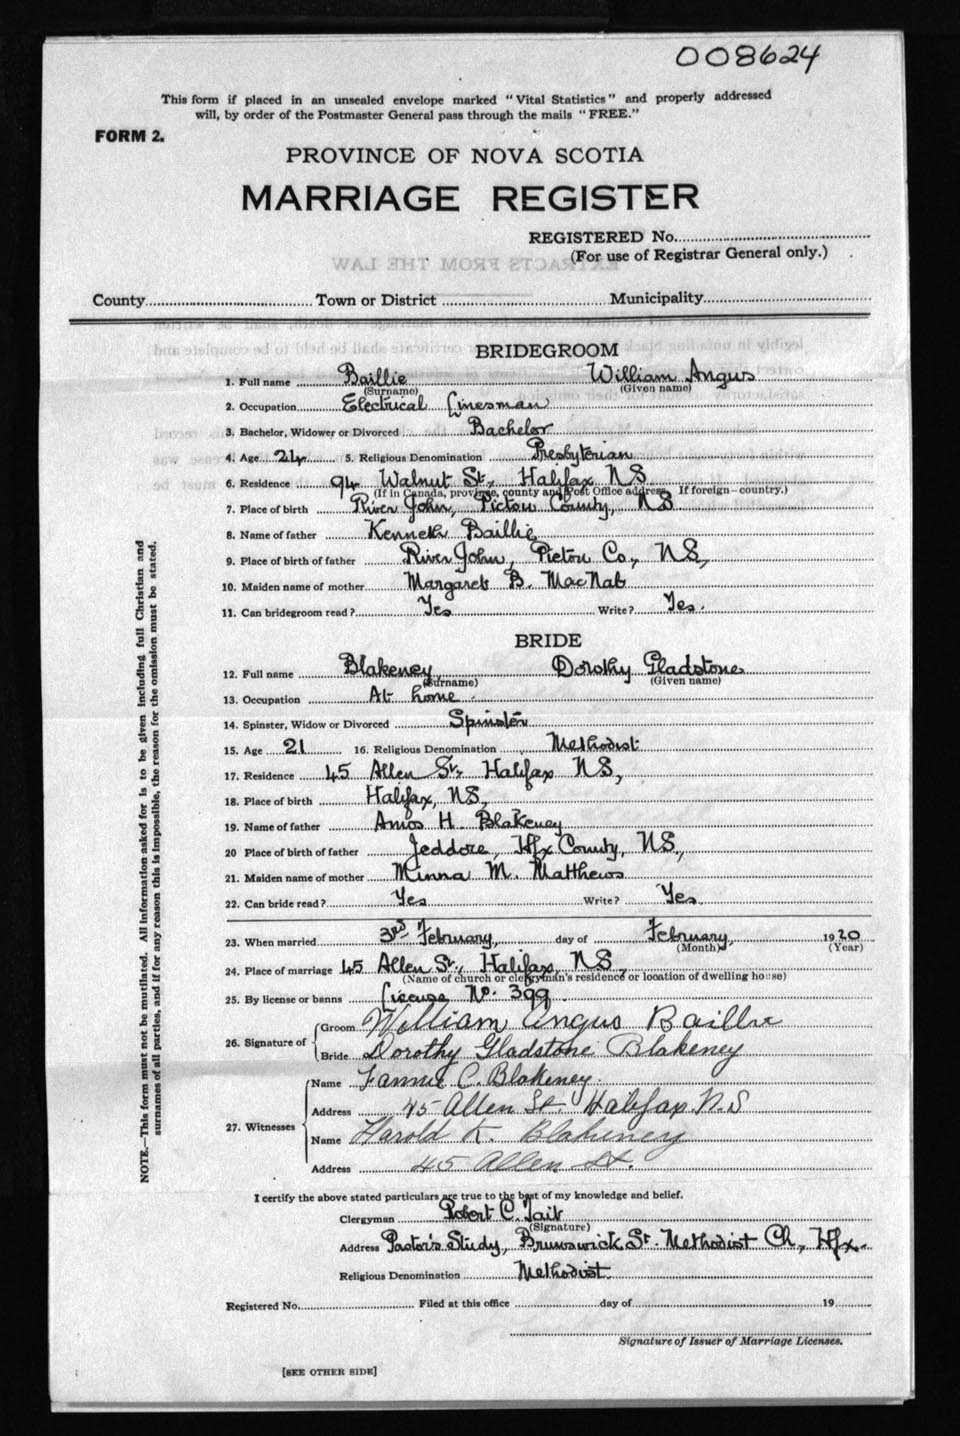 008624
This form if placed in an unsealed envelope marked "Vital Statistics" and properly addressed
will, by order of the Postmaster General pass through the mails "FREE."
FORM 2.
PROVINCE OF NOVA SCOTIA
MARRIAGE REGISTER
REGISTERED No.
(For use of Registrar General only.)
EXTRACTS FROM THE LAW
County Town or District Municipality
BRIDEGROOM
1. Full name Baillie William Angus
(Surname) (Given name)
2. Occupation Electrical Linesman
3. Bachelor, Widower or Divorced Bachelor
4. Age 24 5. Religious Denomination Presbyterian
6. Residence 94 Walnut St., Halifax NS
(If in Canada, province, county and Post Office address. If foreign—country.)
7. Place of birth River John, Pictou County, NS
8. Name of father Kenneth Baillie
9. Place of birth of father River John, Pictou Co., NS,
10. Maiden name of mother Margaret B. MacNab
11. Can bridegroom read? Yes Write? Yes.
BRIDE
12. Full name Blakeney Dorothy Gladstone
(Surname) (Given name)
13. Occupation At home.
14. Spinster, Widow or Divorced Spinster
15. Age 21 16. Religious Denomination Methodist
17. Residence 45 Allen St., Halifax NS,
18. Place of birth Halifax, NS,
19. Name of father Amos H. Blakeney
20 Place of birth of father Jeddore, Hfx County, NS.,
21. Maiden name of mother Minna M. Matthews
22. Can bride read? Yes Write? Yes.
23. When married 3rd February, day of February, 1920
(Month) (Year)
24. Place of marriage 45 Allen St., Halifax, NS,
(Name of church or clergyman's residence or location of dwelling house)
25. By license or banns License No. 399.
26. Signature of Groom William Angus Baillie
Bride Dorothy Gladstone Blakeney
27. Witnesses Name Fannie C. Blakeney.
Address 45 Allen St. Halifax N.S
Name Harold K. Blakeney
Address 45 Allen St.
I certify the above stated particulars are true to the best of my knowledge and belief.
Clergyman Robert C. Tait
(Signature)
Address Pastor's Study, Brunswick St. Methodist Ch., Hfx.
Religious Denomination Methodist.
Registered No. Filed at this office day of 19
Signature of Issuer of Marriage Licenses.
[SEE OTHER SIDE]
NOTE.—This form must not be mutilated. All information asked for is to be given including full Christian and
surnames of all parties, and if for any reason this is impossible, the reason for the omission must be stated.